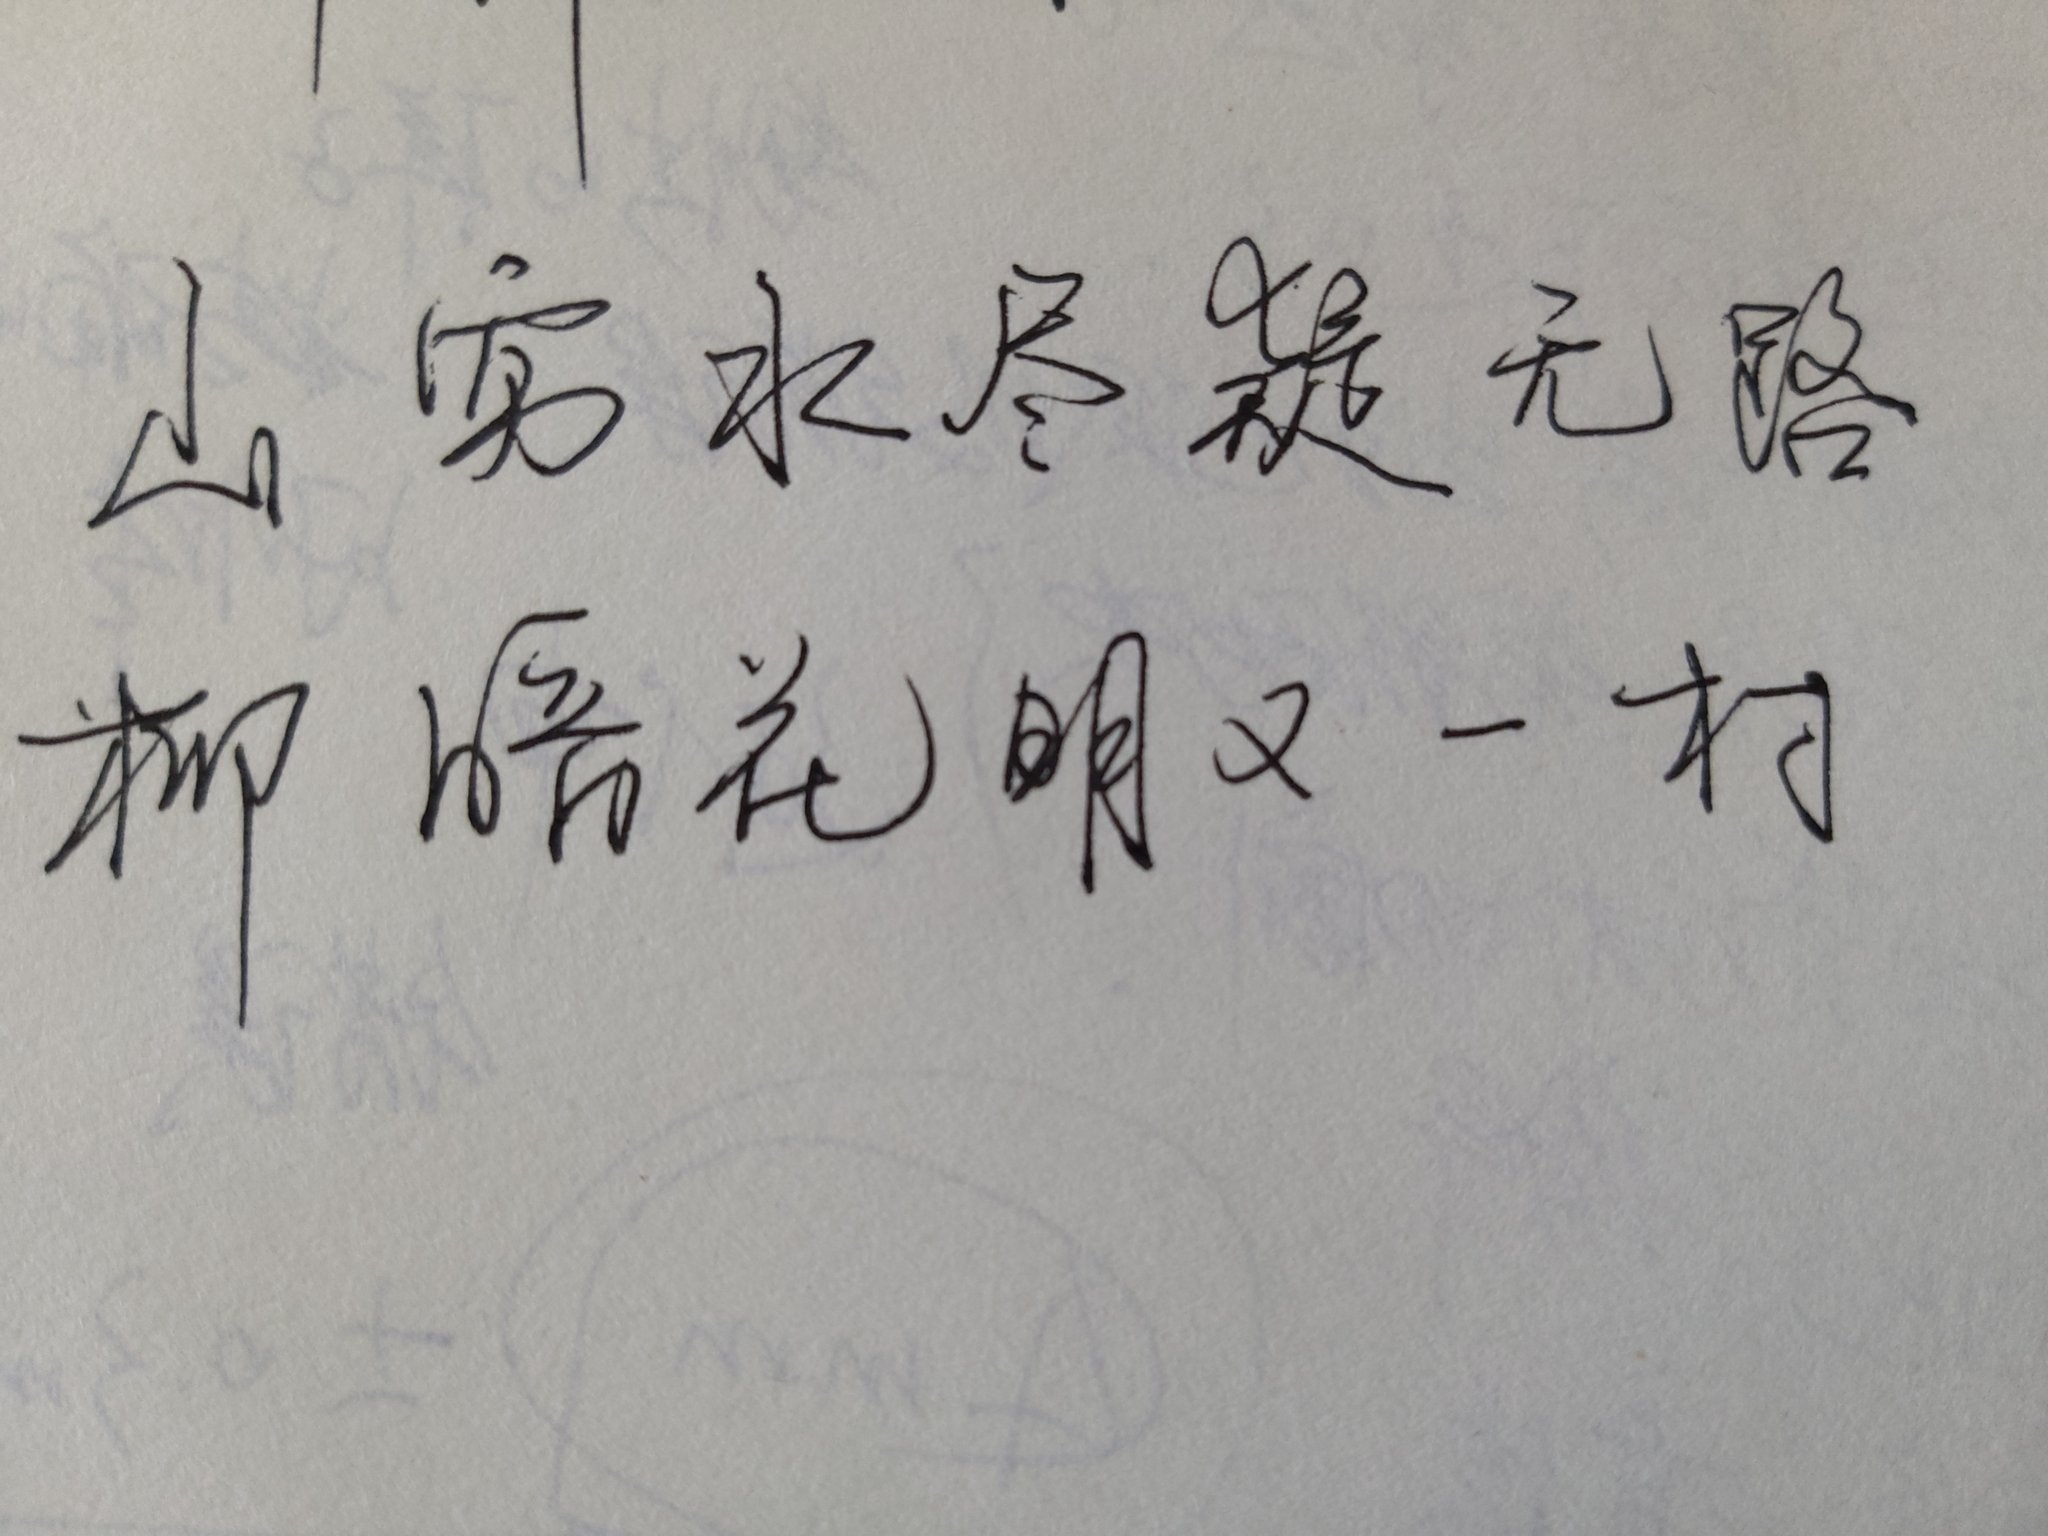 山穷水尽疑无路
柳暗花明又一村